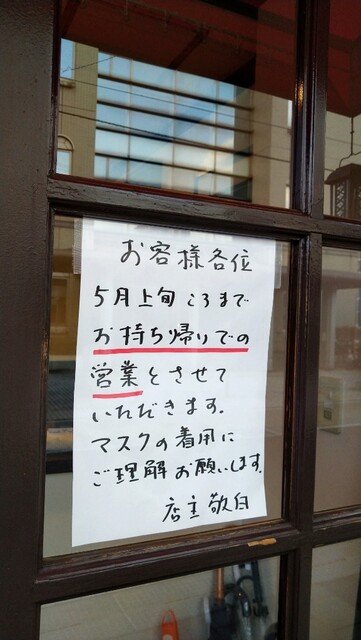 お客様各位
5月上旬ころまで
お持ち帰りでの
営業とさせて
いただきます.
マスクの着用に
ご理解お願いします.
店主敬白